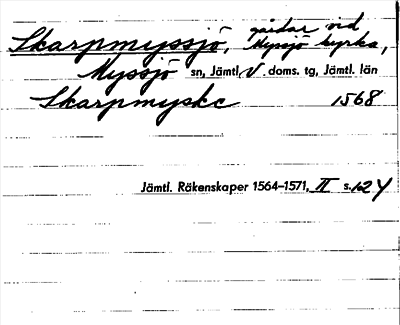 Skarpmyssjö, gårdar vid
Myssjö kyrka,
Myssjö sn, Jämtl. V. doms. tg, Jämtl. län
Skarpmyske 1568
Jämtl. Räkenskaper 1564–1571, II s. 124